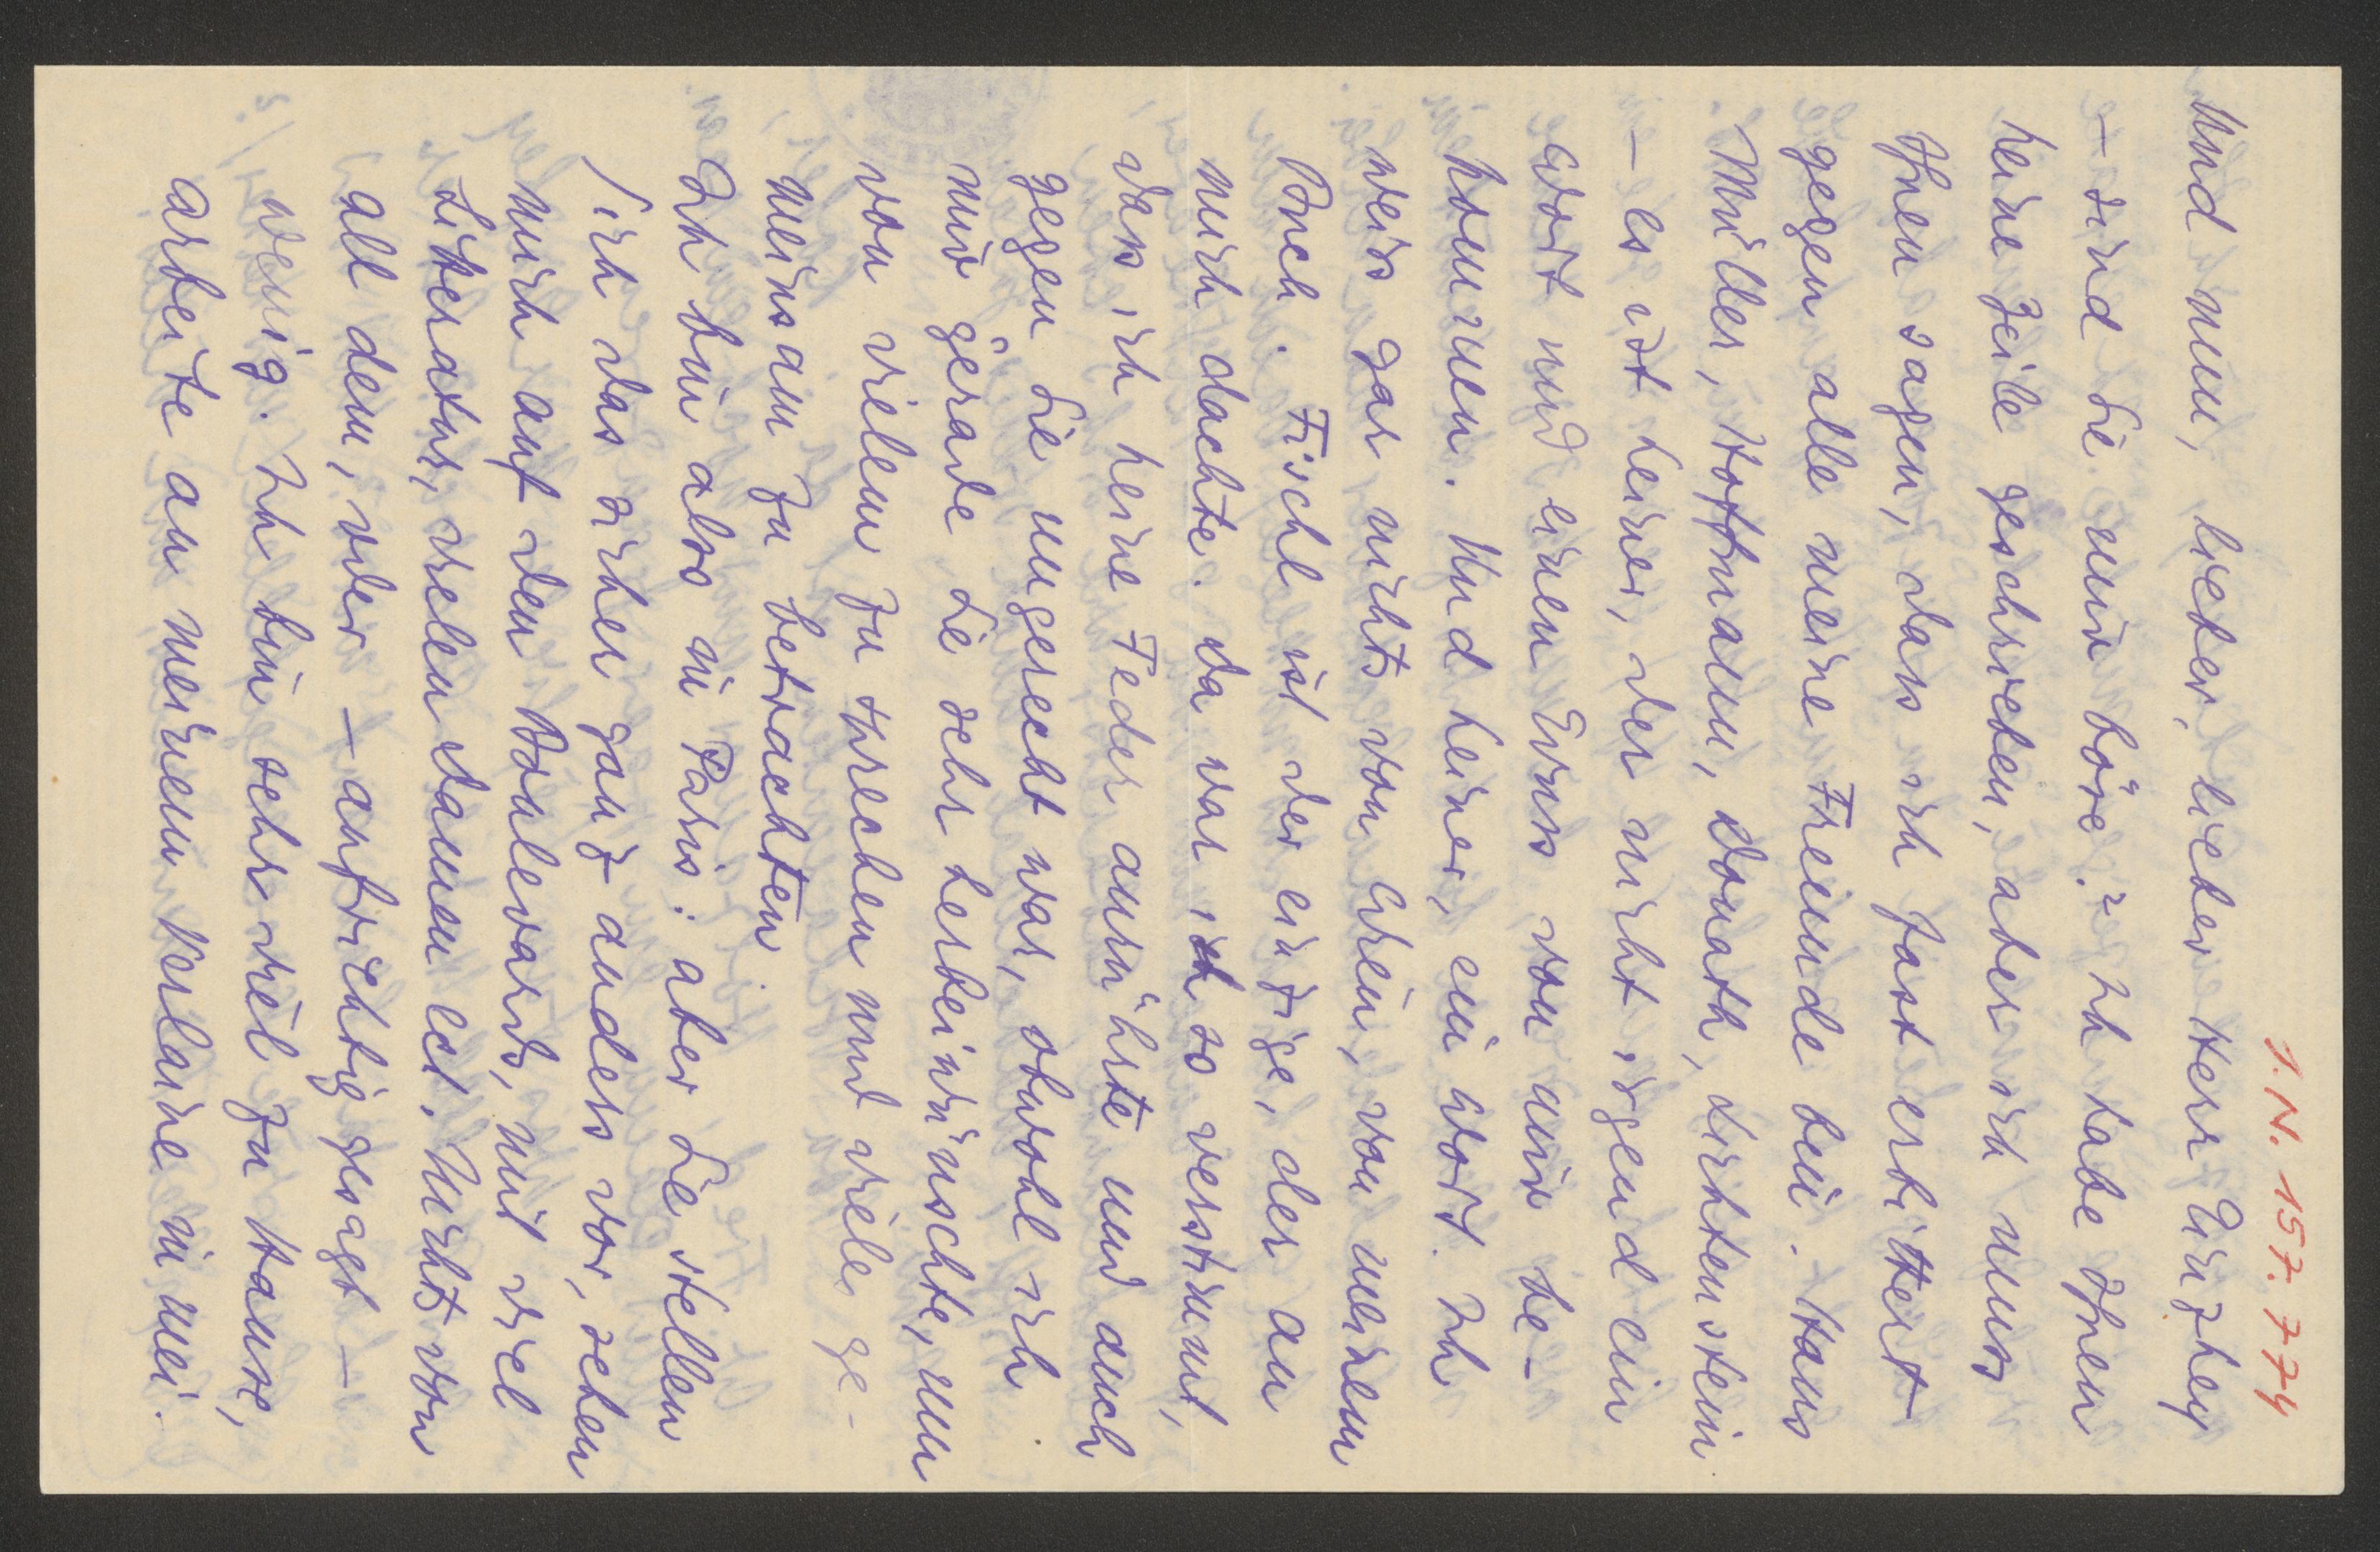 I. N. 157.774
Und nun, lieber, lieber Herr Ginzkey
– sind Sie mir böse? Ich habe Ihnen
keine Zeile geschrieben, aber ich muss
Ihnen sagen, dass ich fast erbittert
gegen alle meine Freunde bin. Hans
Müller, Hoffmann, Donath, Lichtenstein
– es ist keiner, der nicht irgend ein
Wort und einen Gruss von mir be-
kommen. Und keiner, ein Wort. Ich
weiss gar nichts von Wien, von meinem
Buch. Fischl ist der einzige, der an
mich dachte. Da war ich so verstimmt,
dass ich keine Feder anrührte und auch
gegen Sie ungerecht war, obwohl ich
mir gerade Sie sehr herbeiwünschte, um
von vielem zu sprechen und viele ge-
meinsam zu betrachten.
Ich bin also in Paris: aber Sie stellen
sich das sicher ganz anders vor, sehen
mich auf den Boulevards, mit viel
Litteratur, vielen Damen ect. Nichts von
all dem, oder – aufrichtig gesagt –
wenig. Ich bin sehr viel zu Hause,
arbeite an meinem Verlaine in mei-